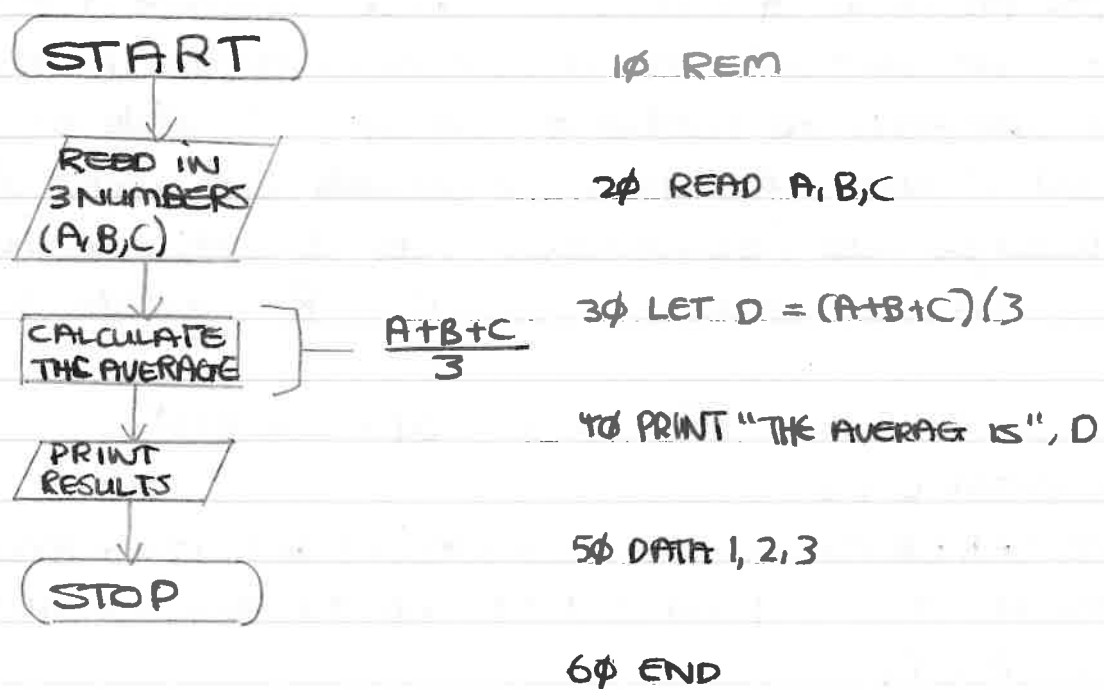 START
REED IN
3 NUMBERS
(A, B, C)
CALCULATE
THE AVERAGE
A+B+C
3
PRINT
RESULTS
STOP
1Ø REM
2Ø READ A, B, C
3Ø LET D = (A+B+C)(3
4Ø PRINT "THE AVERAG IS", D
5Ø DATA 1, 2, 3
6Ø END